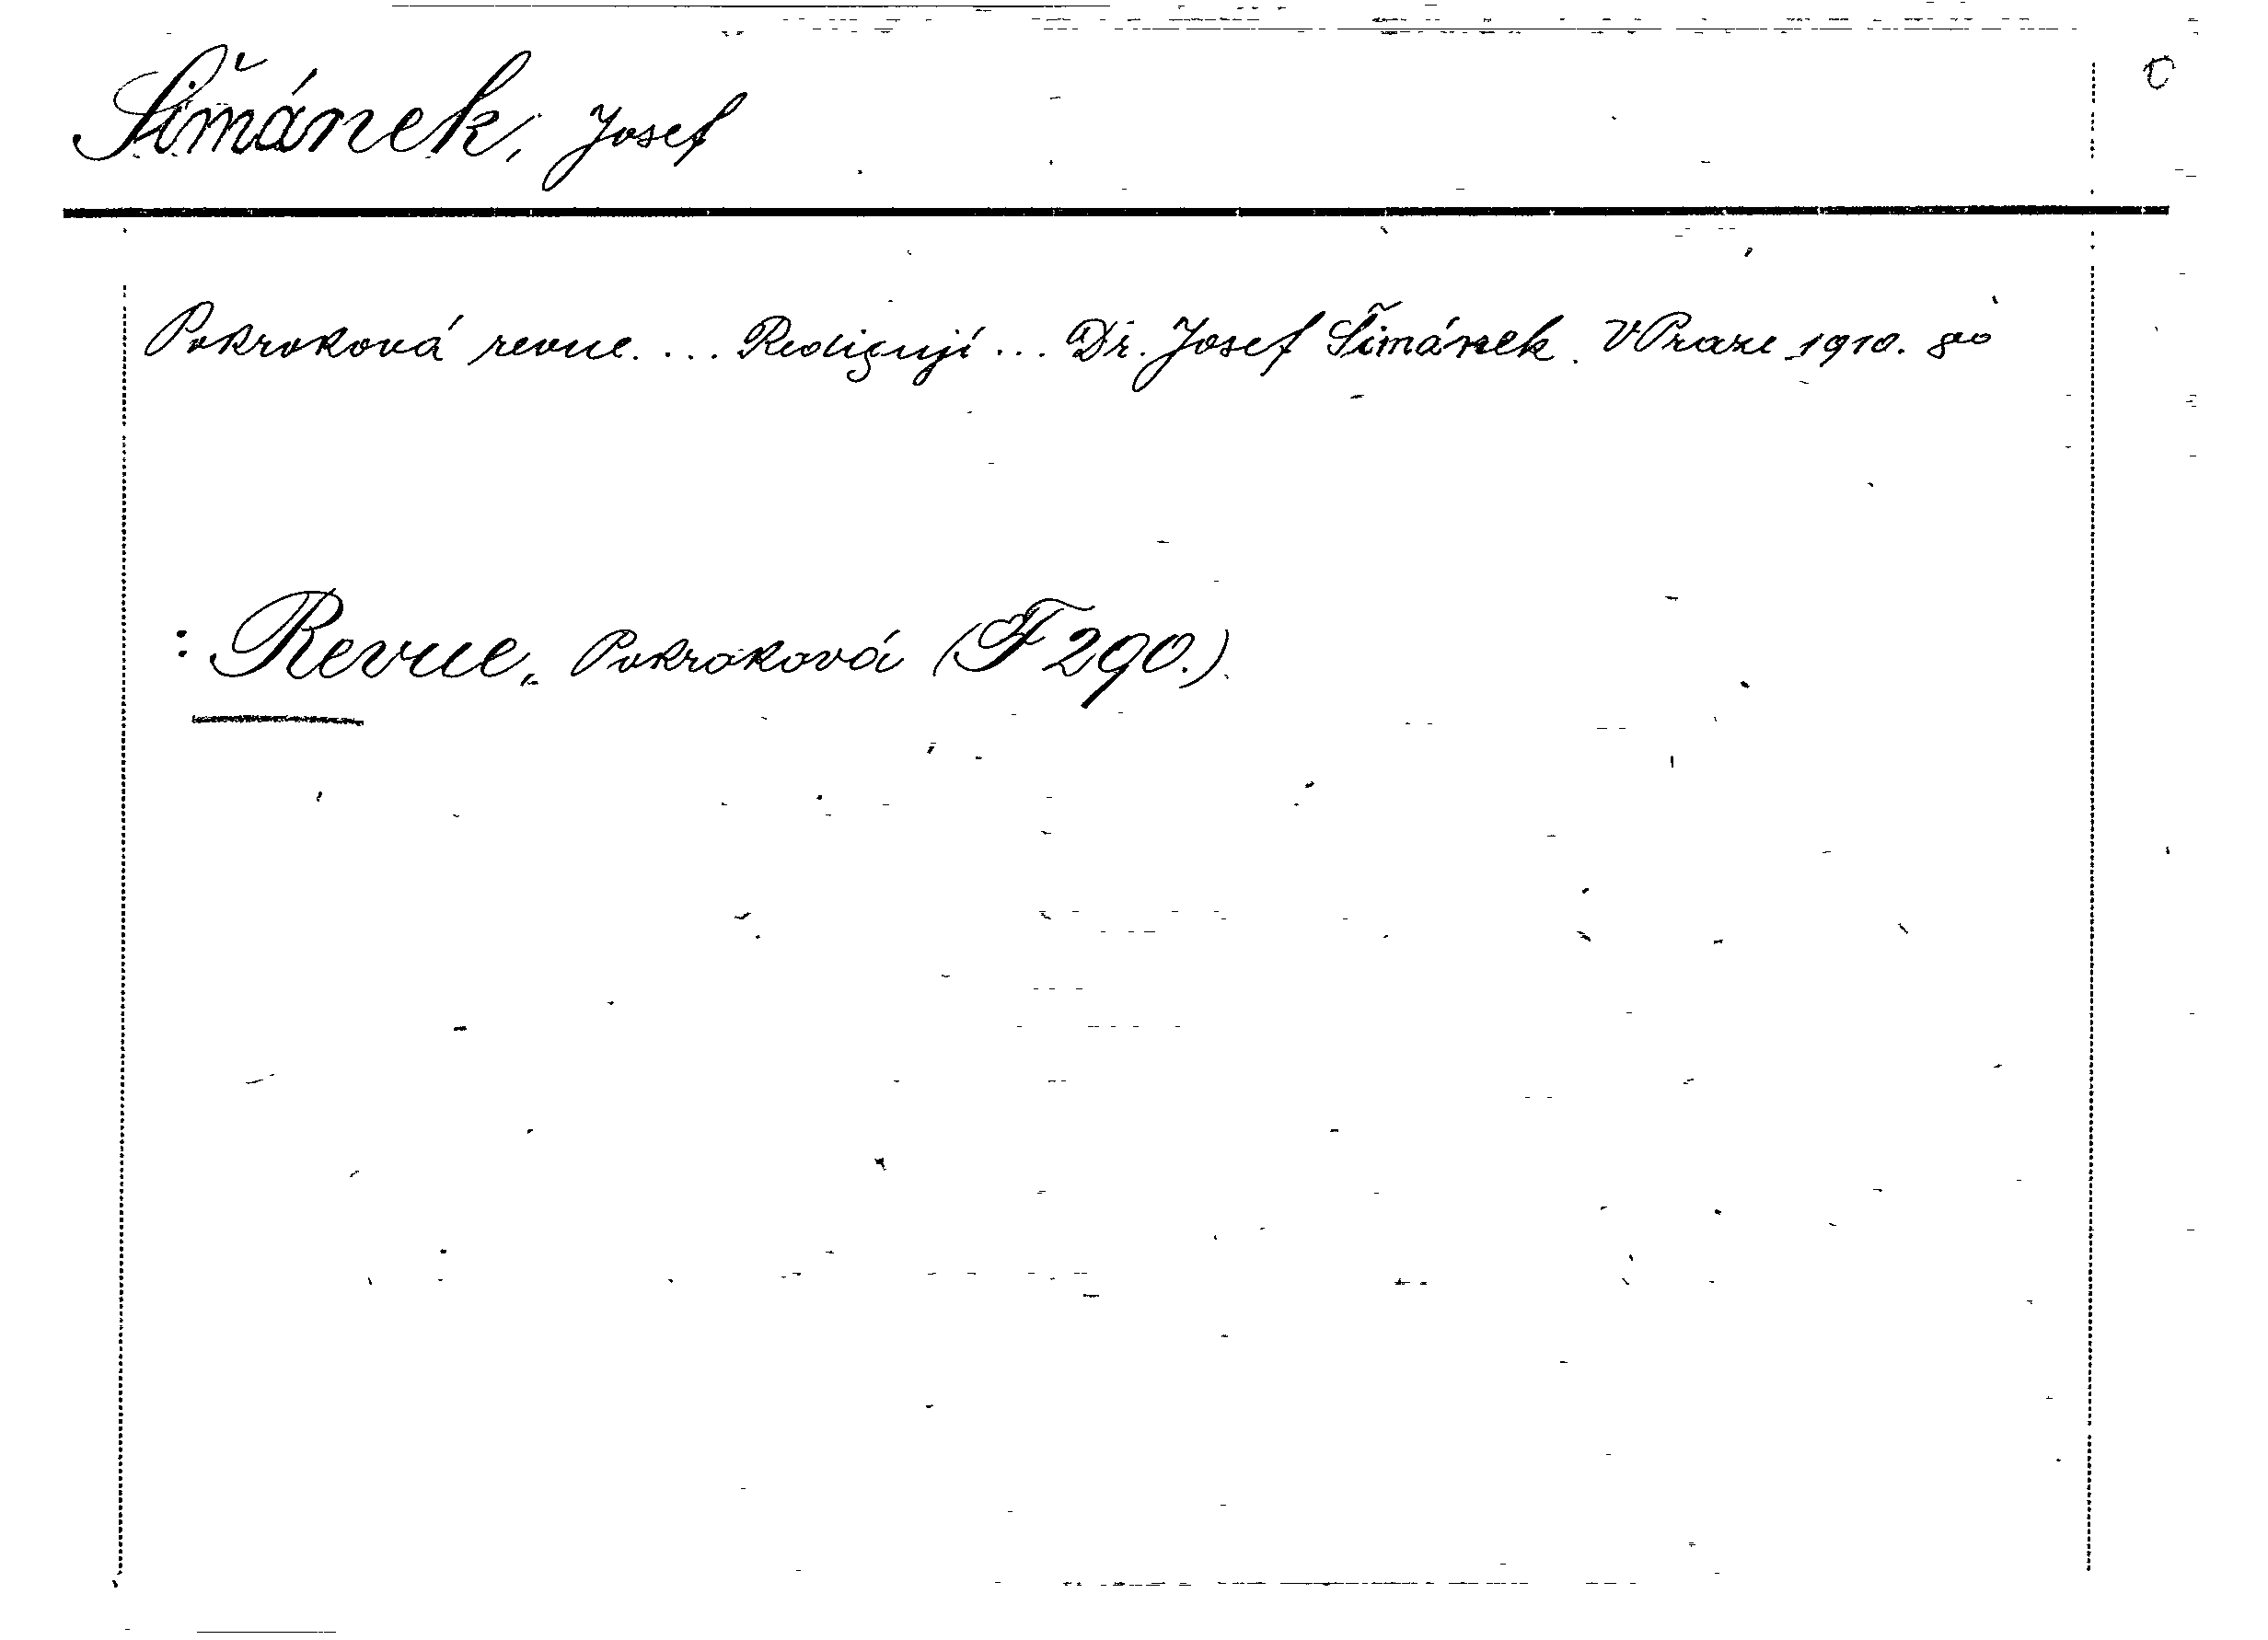 Šimánek, Josef
Pokroková revue. ... Redigují ... Dr. Josef Šimánek. V Praze 1910. 8º
: Revue, Pokroková (F 290.).